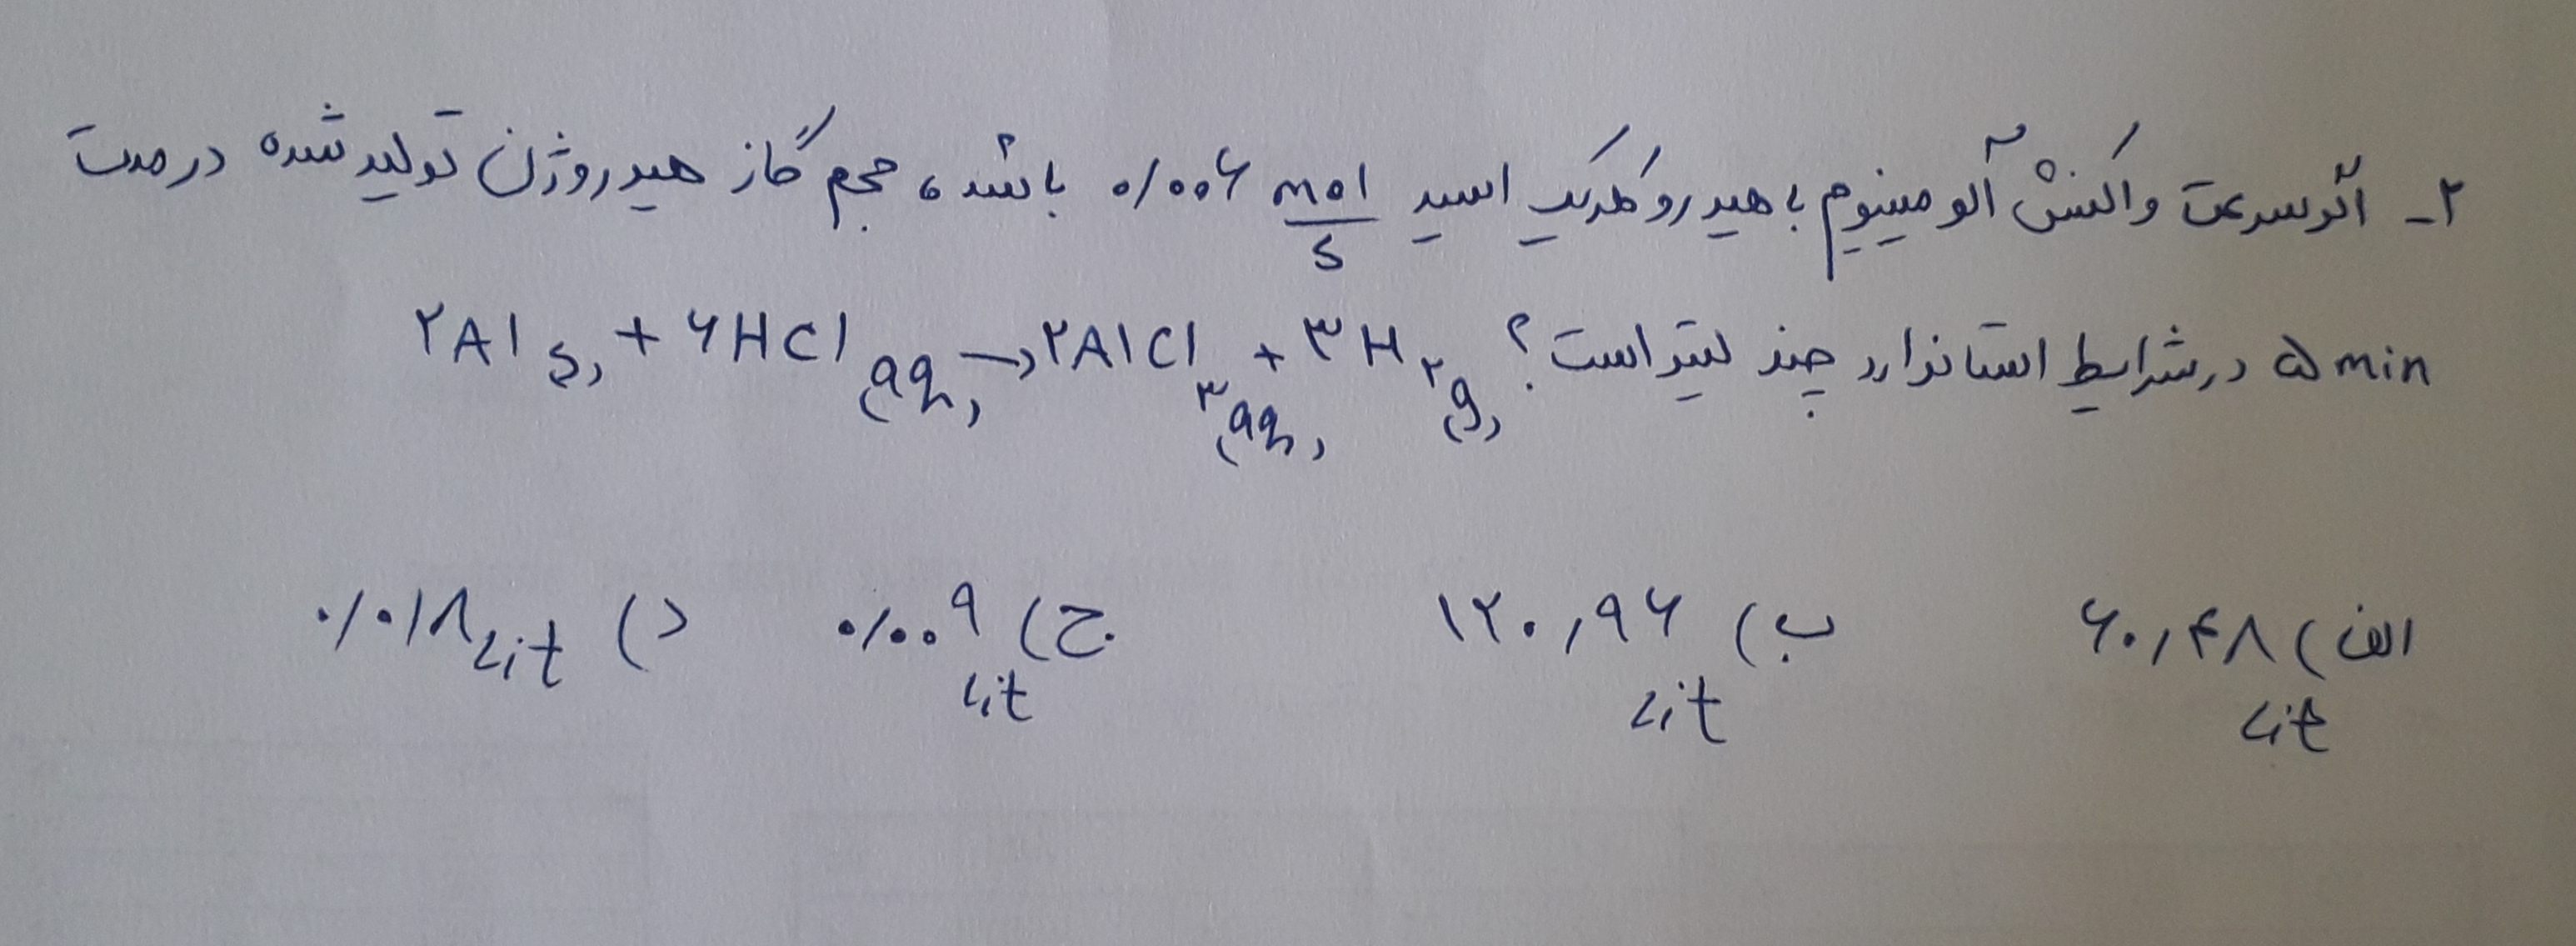 ۲- اگر سرعت واکنش آلومینیوم با هیدروکلریک اسید ۰/۰۰۶ mol/s باشد، حجم گاز هیدروژن تولید شده در مدت
۵ min در شرایط استاندارد چند لیتر است؟ ۲Al(s) + ۶HCl(aq) → ۲AlCl۳(aq) + ۳H۲(g)
الف) ۶۰,۴۸ Lit ب) ۱۲۰,۹۶ Lit ج) ۰/۰۰۹ Lit د) ۰/۰۱۸ Lit